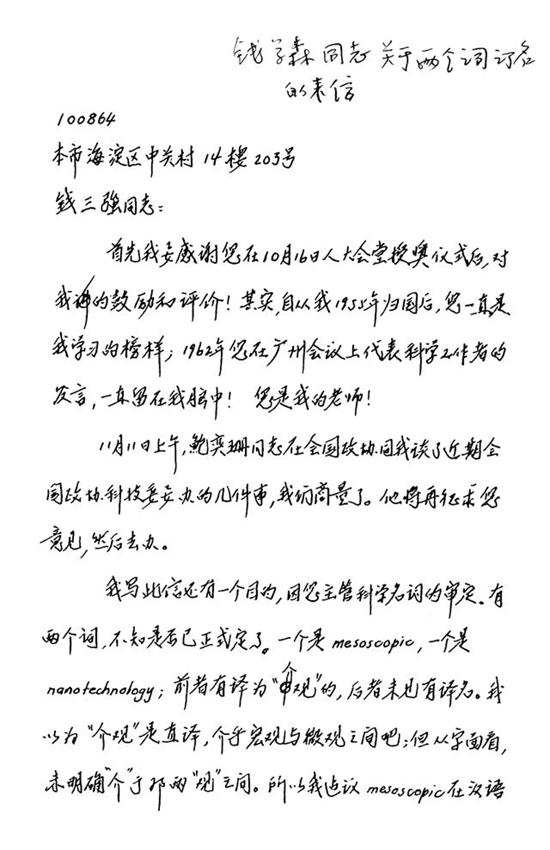 钱学森同志关于两个词订名
的来信
100864
本市海淀区中关村14楼203号
钱三强同志:
首先我要感谢您在10月16日人大会堂授奖仪式后,对
我的鼓励和评价!其实,自从我1955年归国后,您一直是
我学习的榜样;1962年您在广州会议上代表科学工作者的
发言,一直留在我脑中!您是我的老师!
11月11日上午,鲍奕珊同志在全国政协同我谈了近期全
国政协科技委要办的几件事,我们商量了。他将再征求您
意见,然后去办。
我写此信还有一个目的,因您主管科学名词的审定。有
两个词,不知是否已正式定了。一个是mesoscopic,一个是
nanotechnology;前者有译为“介观”的,后者未见有译名。我
以为“介观”是直译,介乎宏观与微观之间吧;但从字面看,
未明确“介”于那两“观”之间。所以我建议mesoscopic在汉语